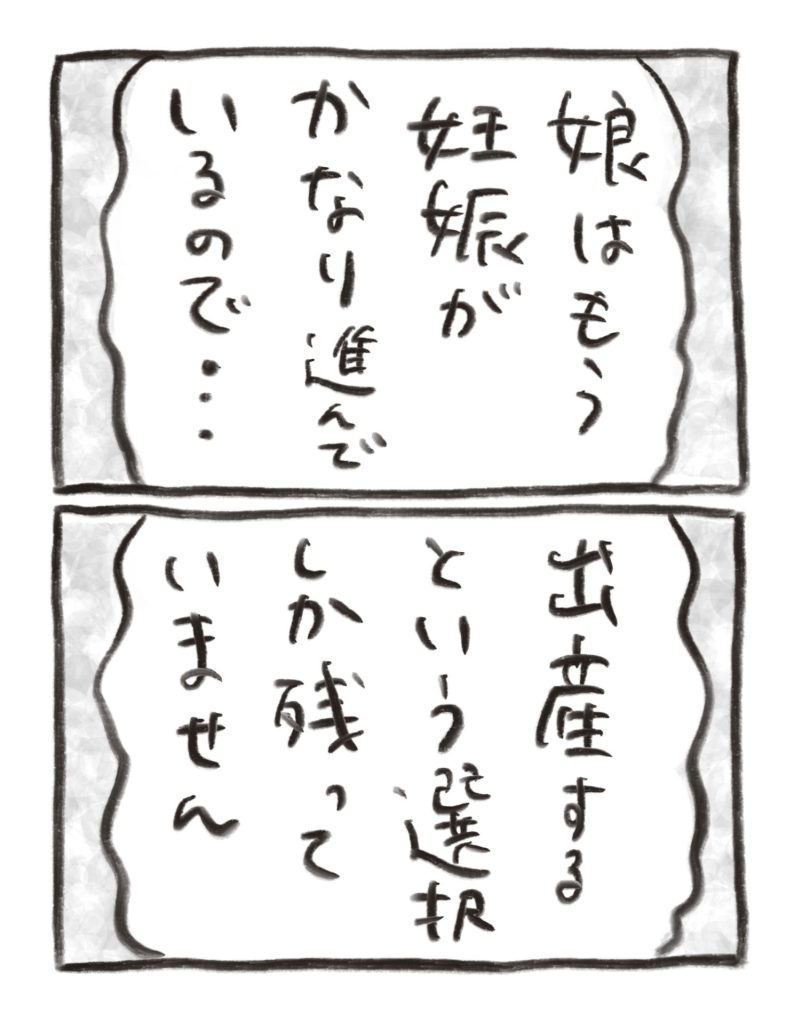 娘はもう
妊娠が
かなり進んで
いるので・・・
出産する
という選択
しか残って
いません